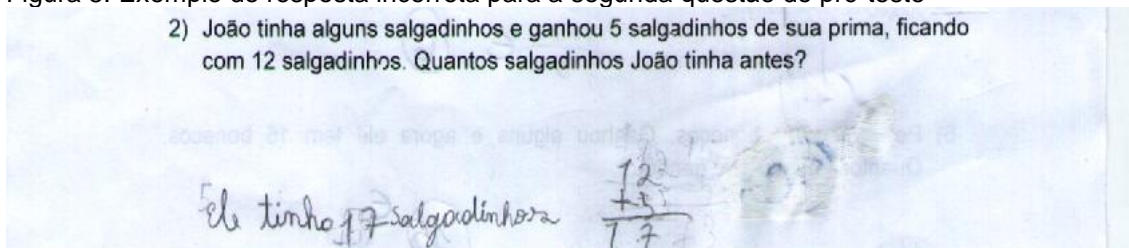 Figura 3: Exemplo de resposta incorreta para a segunda questão do pré-teste
2) João tinha alguns salgadinhos e ganhou 5 salgadinhos de sua prima, ficando
com 12 salgadinhos. Quantos salgadinhos João tinha antes?
Ele tinho 17 salgadinhos
12
+5
17